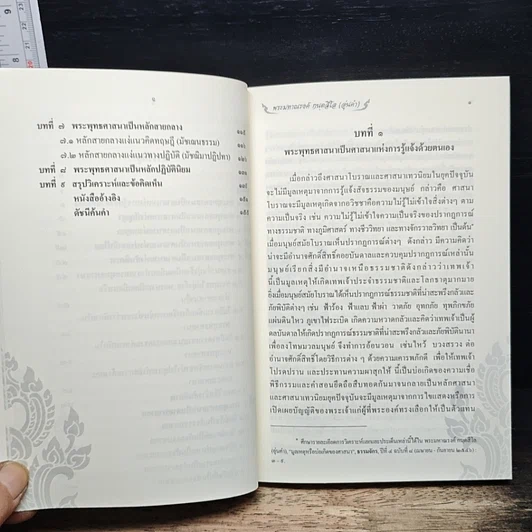 บทที่ ๗ พระพุทธศาสนาเป็นหลักสายกลาง
๗.๑ หลักสายกลางแง่แนวคิดทฤษฎี (มัชเฌนธรรม)
๗.๒ หลักสายกลางแง่แนวทางปฏิบัติ (มัชฌิมาปฏิปทา)
บทที่ ๘ พระพุทธศาสนาเป็นหลักปฏิบัตินิยม
บทที่ ๙ สรุปวิเคราะห์และข้อคิดเห็น
หนังสืออ้างอิง
ดัชนีค้นคำ
พระมหาณรงค์ กนฺตสีโล (อู่นคำ)
บทที่ ๑
พระพุทธศาสนาเป็นศาสนาแห่งการรู้แจ้งด้วยตนเอง
เมื่อกล่าวถึงศาสนาโบราณและศาสนาเทวนิยมในยุคปัจจุบัน
จะไม่มีมูลเหตุมาจากการรู้แจ้งสัจธรรมของมนุษย์ กล่าวคือ ศาสนา
โบราณมีมูลเหตุเกิดจากอวิชชาคือความไม่รู้ไม่เข้าใจสิ่งต่างๆ ตาม
ความเป็นจริง เช่น ความไม่รู้ไม่เข้าใจความเป็นจริงของปรากฏการณ์
ทางธรรมชาติ ทางภูมิศาสตร์ ทางชีววิทยา และทางจักรวาลวิทยา เป็นต้น*
เมื่อมนุษย์สมัยโบราณเห็นปรากฏการณ์ต่างๆ ดังกล่าว มีความคิดว่า
น่าจะมีอำนาจศักดิ์สิทธิ์คอยบันดาลและควบคุมปรากฏการณ์เหล่านั้น
มนุษย์เรียกสิ่งมีอำนาจเหนือธรรมชาติดังกล่าวว่าเทพเจ้า
นี้เป็นมูลเหตุให้เกิดเทพเจ้าประจำธรรมชาติ และโลกธาตุมากมาย
ยิ่งเมื่อมนุษย์สมัยโบราณได้เห็นปรากฏการณ์ธรรมชาติที่น่าสะพรึงกลัวและ
ภัยพิบัติต่างๆ เช่น ฟ้าร้อง ฟ้าแลบ ฟ้าผ่า วาตภัย อุทกภัย ทุพภิกขภัย
แผ่นดินไหว ภูเขาไฟระเบิด เกิดความหวาดกลัวและคิดว่าเทพเจ้าเป็นผู้
ดลบันดาลให้เกิดปรากฏการณ์ธรรมชาติที่น่าสะพรึงกลัวและภัยพิบัตินานา
เพื่อลงโทษมวลมนุษย์ จึงทำการอ้อนวอน เช่นไหว้ บวงสรวง ต่อ
อำนาจศักดิ์สิทธิ์โดยวิธีการต่าง ๆ ด้วยความเคารพภักดี เพื่อให้เทพเจ้า
โปรดปราน และประทานความผาสุกให้ นี้เป็นบ่อเกิดของความเชื่อ
พิธีกรรมและคำสอนยึดถือสืบทอดกันมาจนกลายเป็นหลักศาสนา
และศาสนาเทวนิยมยุคปัจจุบันจะมีมูลเหตุมาจากการไขแสดงหรือการ
เปิดเผยบัญญัติของพระเจ้าแก่ผู้ที่พระองค์ทรงเลือกให้เป็นตัวแทน